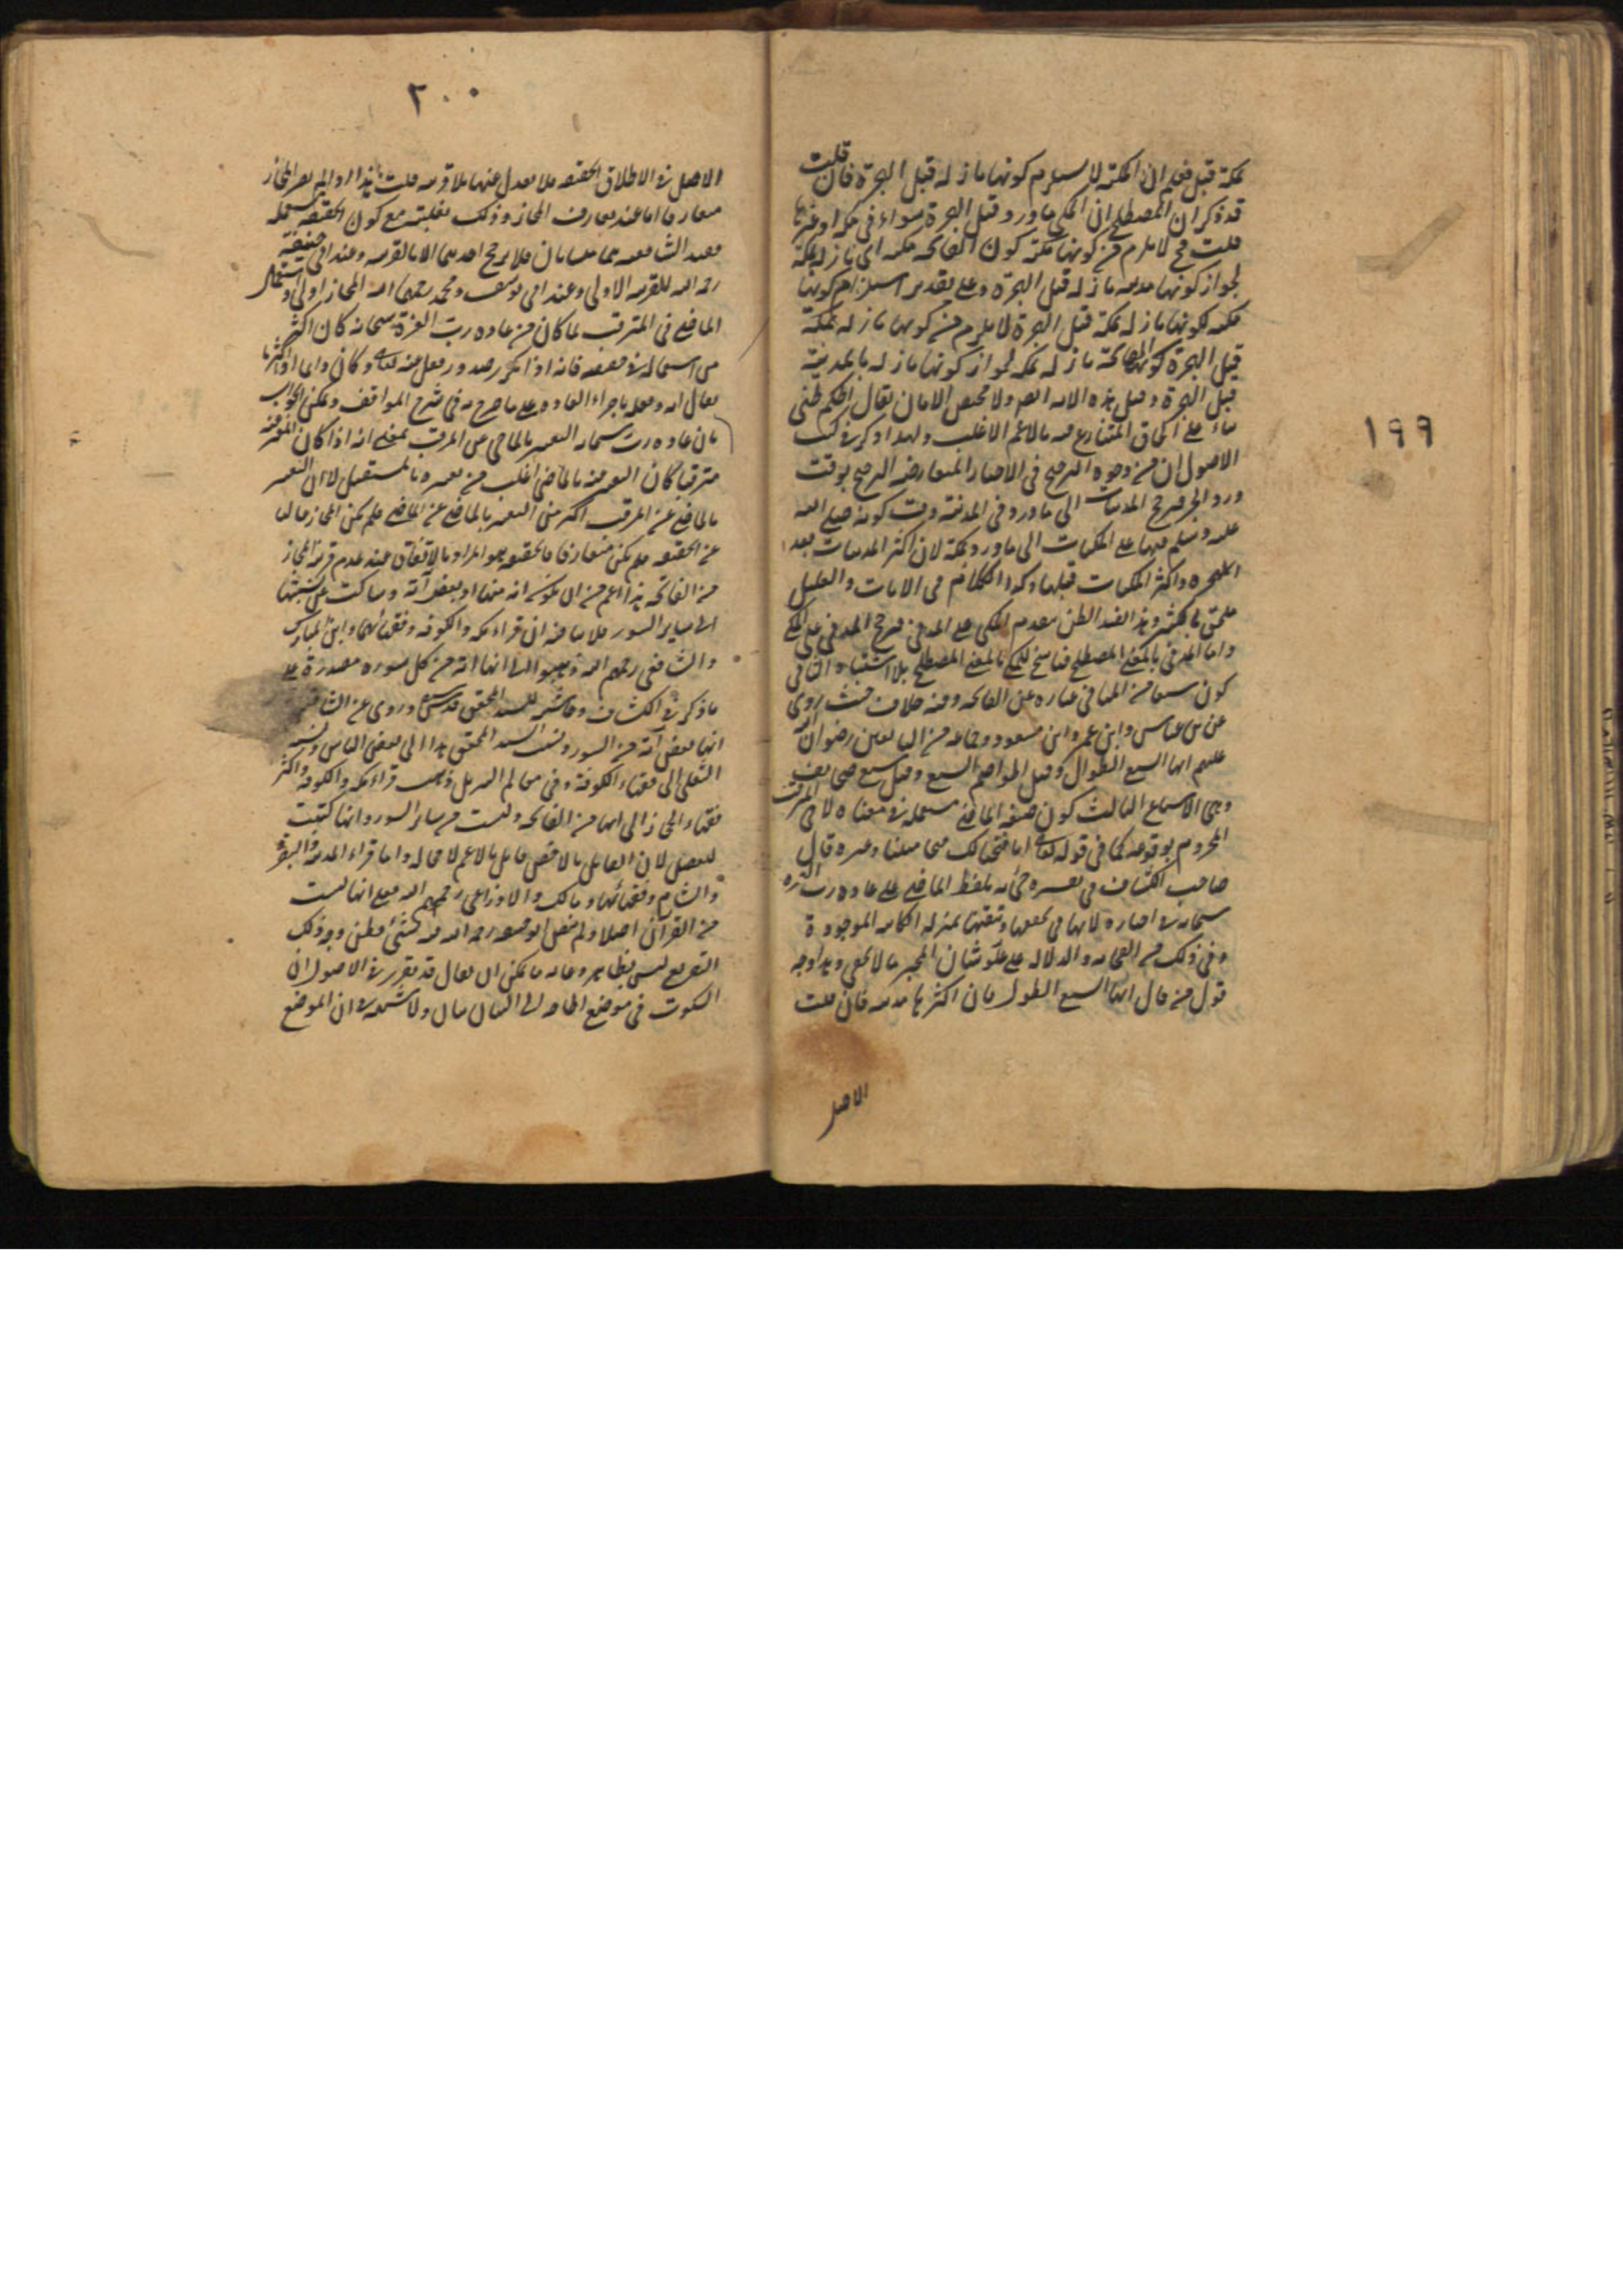 بمكة قبل فعلم ان المكية لا يستلزم كونها نازلة قبل الهجرة فان قلت
قد ذكر ان المصطلح ان المكي ما ورد قبل الهجرة سواء في مكة او غيرها
قلت لا يلزم من كونها مكية كون الفاتحة مكية اى نازلة بمكة
لجواز كونها نازلة قبل الهجرة وعلى تقدير استلزام كونها
مكية كونها نازلة بمكة قبل الهجرة لا يلزم من كونها نازلة بمكة
قبل الهجرة كون الفاتحة نازلة بمكة لجواز كونها نازلة بالمدينة
قبل الهجرة وقبل هذه الآية ولا مخلص الا بان يقال الحكم ظني
بناء على الحاق المتنازع فيه بالاعم الاغلب ولهذا ذكر في كتب
الاصول ان من وجوه الترجيح في الاخبار المتعارضة الترجيح بوقت
ورود الخبر فيرجح المدنيات الى ما ورد في المدينة وقت كونه صلى الله
عليه وسلم فيها على المكيات الى ما ورد بمكة لان اكثر المدنيات بعد
الهجرة واكثر المكيات قبلها وكذا الكلام في الايات والقليل
ملحق بالكثير وهذا يفيد الظن بتقدم المكي على المدني فيرجح المدني على المكي
واما المدني بالمعنى المصطلح فناسخ للمكي بالمعنى المصطلح بلا اشتباه الثاني
كون سبعا من المثاني عبارة عن الفاتحة وفيه خلاف حيث روى
عن ابن عباس وابن عمر وابن مسعود وجماعة من التابعين رضوان الله
عليهم انها السبع الطوال وقيل الحواميم السبع وقيل سبع صحايف
وهي الاسباع الثالث كون صيغة الماضي مستعملة في معناه لا في المترقب
المجزوم بوقوعه كما في قوله تعالى انا فتحنا لك فتحا مبينا وغيره قال
صاحب الكشاف في تفسيره جئ به بلفظ الماضي على عادة رب العزة
سبحانه في اخباره لانها في تحققها وتيقنها بمنزلة الكائنة الموجودة
وفي ذلك من الفخامة والدلالة على علو شان المخبر ما لا يخفى وهذا وجه
قول من قال انها السبع الطول فان اكثرها مدنية فان قلت
الاصل
١٩٩
٢٠٠
الاصل في الاطلاق الحقيقة فلا يعدل عنها بلا قرينة قلت هذا اذا لم يصر المجاز
متعارفا اما عند تعارف المجاز وذلك بغلبته مع كون الحقيقة مستعملة
فعند الشافعية هما متساويان فلا يرجح احدهما الا بالقرينة وعند ابي حنيفة
رحمه الله الاولى وعند ابي يوسف ومحمد رحمهما الله المجاز اولى واستعمال
الماضي في المترقب لما كان من عادة رب العزة سبحانه كان اكثر
من استعماله في حقيقته فانه اذا تكرر صدور فعل منه تعالى وكان دائما او اكثريا
يقال انه فعله باجراء العادة على ما صرح به في شرح المواقف ويمكن الجواب
بان عادة رب سبحانه التعبير بالماضي عن المترقب بمعنى انه اذا كان المعبر عنه
مترقبا كان التعبير عنه بالماضي اغلب من تعبيره بالمستقبل لا ان التعبير
بالماضي عن المترقب اكثر من التعبير بالماضي عن الماضي فلم يكن المجاز غالبا
عن الحقيقة فلم يكن متعارفا فالحقيقة هو المراد بالاتفاق عند عدم قرينة المجاز
من الفاتحة هذا اعم من ان يكون انه منها او بعض آية وساكت عن نسبتها
الى ساير السور فلا ينافيه ان قراء مكة والكوفة وفقهائهما وابن المبارك
والشافعي رحمهم الله ذهبوا الى انها آية من كل سورة مصدرة بها على
ما ذكر في الكشاف وحاشيته للسيد المحقق قدس سره وروى عن الشافعي
انها بعض آية من السور ونسب السيد المحقق هذا الى بعض الناس ونسبه
الثعلبي الى فقهاء الكوفة وفي معالم التنزيل ذهب قراء مكة والكوفة واكثر
فقهاء الحجاز الى انها من الفاتحة وليست من سائر السور وانها كتبت
للفصل لان القايل بالاخص قايل بالاعم لا محالة واما قراء المدينة والبصرة
والشام وفقهائها ومالك والاوزاعي رحمهم الله فعلى انها ليست
من القرآن اصلا ولم ينص ابو حنيفة رحمه الله فيه بشئ فظن وجه ذلك
التفريع ليس بظاهر وغاية ما يمكن ان يقال قد تقرر في الاصول ان
السكوت في موضع الحاجة الى البيان بيان ولا شبهة في ان الموضع